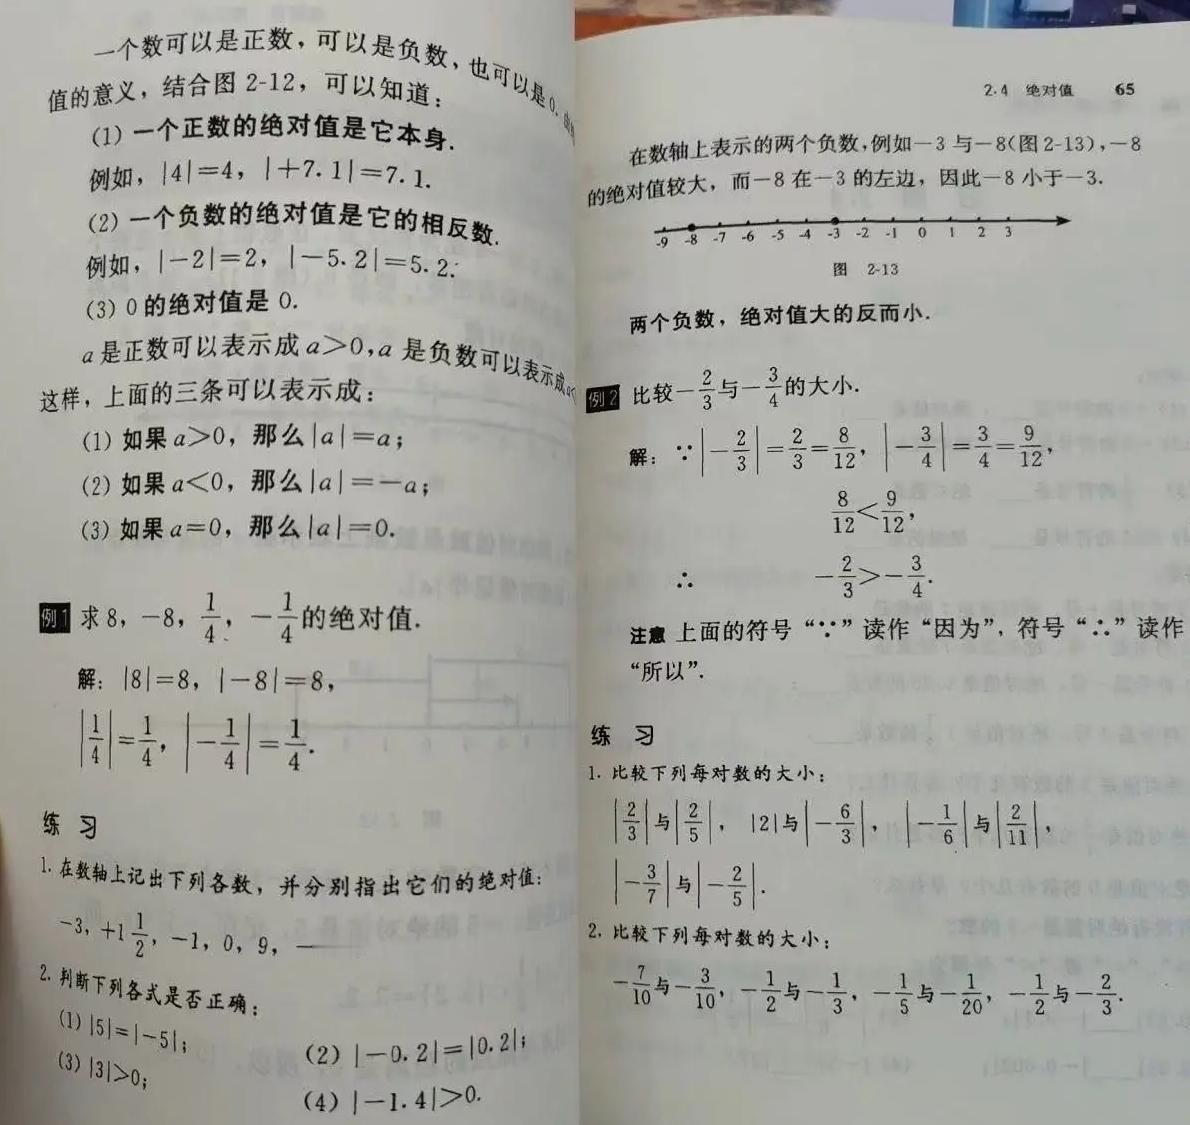 一个数可以是正数，可以是负数，也可以是0.
值的意义，结合图2-12，可以知道：
(1) 一个正数的绝对值是它本身.
例如，|4|=4，|+7.1|=7.1.
(2) 一个负数的绝对值是它的相反数.
例如，|-2|=2，|-5.2|=5.2.
(3) 0的绝对值是0.
a是正数可以表示成a>0,a是负数可以表示成a<
这样，上面的三条可以表示成：
(1) 如果a>0，那么|a|=a；
(2) 如果a<0，那么|a|=-a；
(3) 如果a=0，那么|a|=0.
例1 求8，-8，1/4，-1/4的绝对值.
解：|8|=8，|-8|=8，
|1/4|=1/4，|-1/4|=1/4.
练 习
1. 在数轴上记出下列各数，并分别指出它们的绝对值：
-3，+1 1/2，-1，0，9，
2. 判断下列各式是否正确：
(1) |5|=|-5|；
(2) |-0.2|=|0.2|；
(3) |3|>0；
(4) |-1.4|>0.
2.4 绝对值 65
在数轴上表示的两个负数,例如-3与-8(图2-13),-8
的绝对值较大，而-8在-3的左边，因此-8小于-3.
-9 -8 -7 -6 -5 -4 -3 -2 -1 0 1 2 3
图 2-13
两个负数，绝对值大的反而小.
例2 比较-2/3与-3/4的大小.
解：∵ |-2/3|=2/3=8/12，|-3/4|=3/4=9/12，
8/12<9/12，
∴ -2/3>-3/4.
注意 上面的符号“∵”读作“因为”，符号“∴”读作
“所以”.
练 习
1. 比较下列每对数的大小：
|2/3|与|2/5|，|2|与|-6/3|，|-1/6|与|2/11|，
|-3/7|与|-2/5|.
2. 比较下列每对数的大小：
-7/10与-3/10，-1/2与-1/3，-1/5与-1/20，-1/2与-2/3.